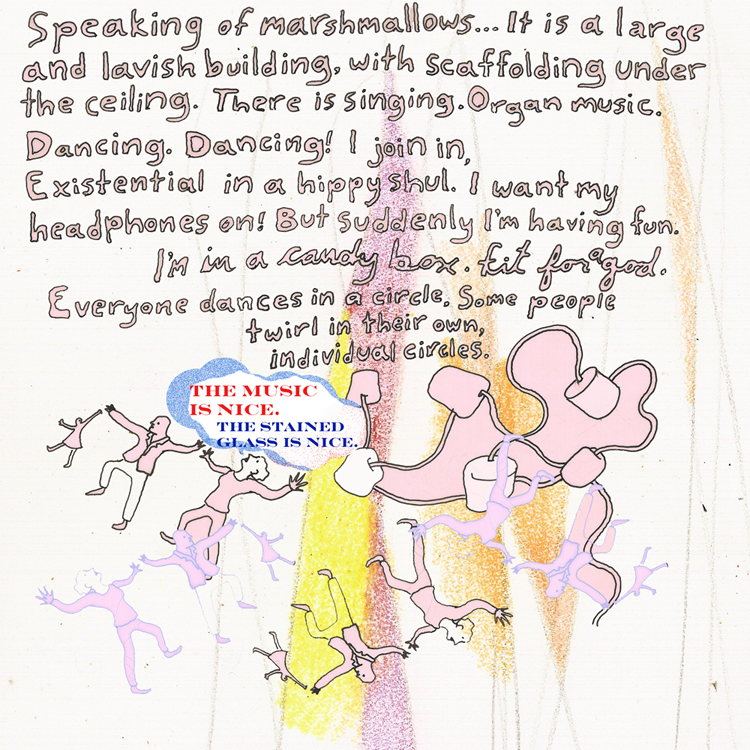 Speaking of marshmallows... It is a large
and lavish building, with scaffolding under
the ceiling. There is singing. Organ music.
Dancing. Dancing! I join in,
Existential in a hippy shul. I want my
headphones on! But suddenly I'm having fun.
I'm in a candy box. fit for a god.
Everyone dances in a circle. Some people
twirl in their own,
individual circles.
THE MUSIC
IS NICE.
THE STAINED
GLASS IS NICE.